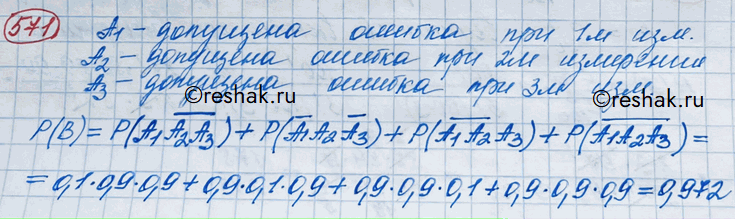 571 A₁ – допущена ошибка при 1м изм.
A₂ – допущена ошибка при 2м измерении
A₃ – допущена ошибка при 3м изм.
©reshak.ru ©reshak.ru
P(B) = P(A₁ A̅₂A̅₃) + P(A̅₁ A₂ A̅₃) + P(A̅₁A̅₂ A₃) + P(A̅₁A̅₂A̅₃) =
= 0,1·0,9·0,9 + 0,9·0,1·0,9 + 0,9·0,9·0,1 + 0,9·0,9·0,9 = 0,972